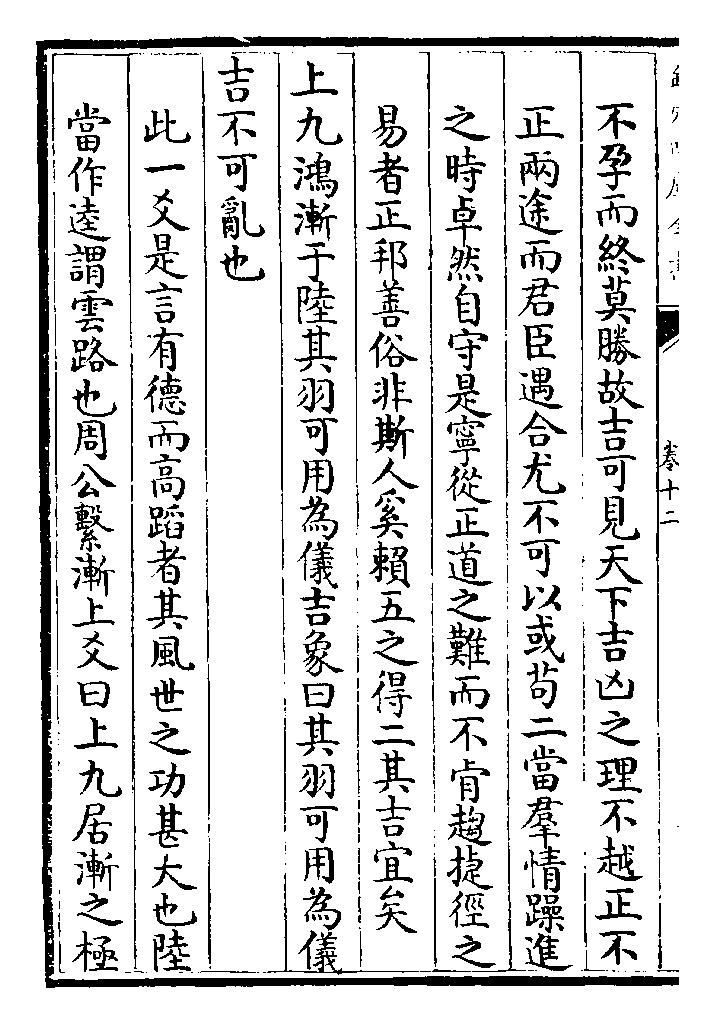 卷十二
不孕而終莫勝故吉可見天下吉凶之理不越正不
正兩途而君臣遇合尤不可以或茍二當羣情躁進
之時卓然自守是寧從正道之難而不肯趨捷徑之
易者正邦善俗非斯人奚賴五之得二其吉宜矣
上九鴻漸于陸其羽可用為儀吉象曰其羽可用為儀
吉不可亂也
此一爻是言有德而高蹈者其風世之功甚大也陸
當作逵謂雲路也周公繫漸上爻曰上九居漸之極